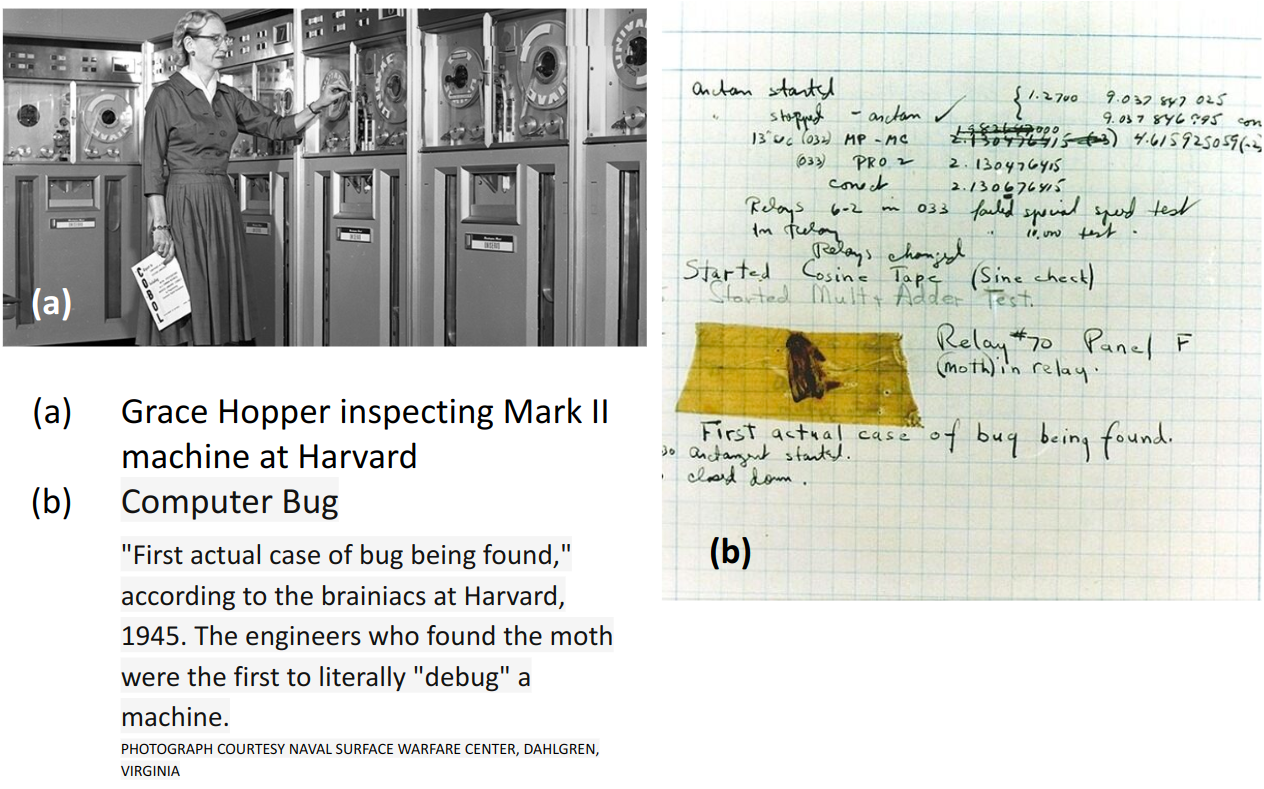 UNIVAC
UNIVAC
COBOL
(a)
(a) Grace Hopper inspecting Mark II
machine at Harvard
(b) Computer Bug
"First actual case of bug being found,"
according to the brainiacs at Harvard,
1945. The engineers who found the moth
were the first to literally "debug" a
machine.
PHOTOGRAPH COURTESY NAVAL SURFACE WARFARE CENTER, DAHLGREN,
VIRGINIA
arctan started { 1.2700 9.037 847 025
" stopped - arctan ✓ 9.037 846 995 con
13" (032) MP - MC 4.615925059(-2
(033) PRO 2 2.130476415
conect 2.130676415
Relays 6-2 in 033 failed special speed test
In relay " 10,000 test .
Relays changed
Started Cosine Tape (Sine check)
Started Mult + Adder Test.
Relay #70 Panel F
(moth) in relay.
First actual case of bug being found.
arctangent started.
closed down.
(b)